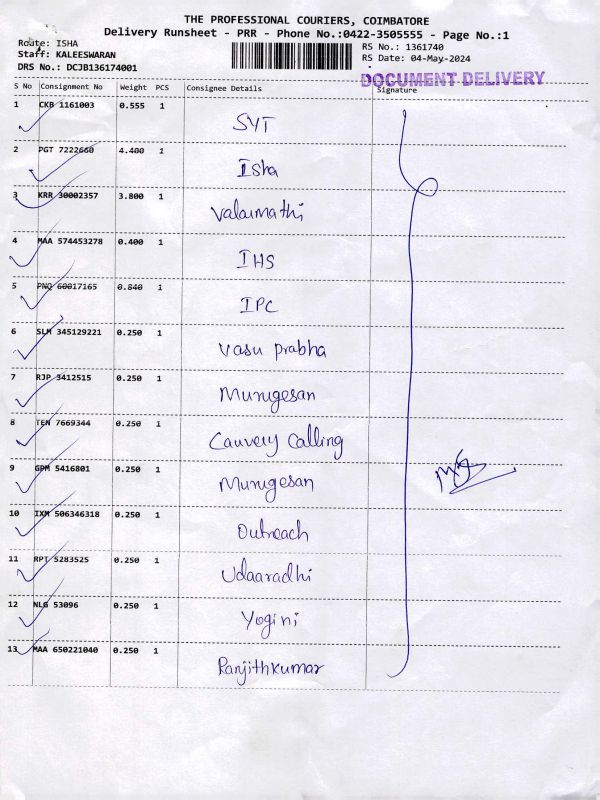 THE PROFESSIONAL COURIERS, COIMBATORE
Delivery Runsheet - PRR - Phone No.:0422-3505555 - Page No.:1
Route: ISHA
RS No.: 1361740
Staff: KALEESWARAN
RS Date: 04-May-2024
DRS No.: DCJB136174001
DOCUMENT DELIVERY
S No Consignment No Weight PCS Consignee Details Signature
1 CKB 1161003 0.555 1 SYT
2 PGT 7222660 4.400 1 Isha
3 KRR 30002357 3.800 1 Valarmathi
4 MAA 574453278 0.400 1 IHS
5 PNQ 60017165 0.840 1 IPC
6 SLM 345129221 0.250 1 Vasu prabha
7 RJP 3412515 0.250 1 Murugesan
8 TEN 7669344 0.250 1 Cauvery Calling
9 GPM 5416801 0.250 1 Murugesan
10 IXM 506346318 0.250 1 Outreach
11 RPT 5283525 0.250 1 Udaaradhi
12 NLG 53096 0.250 1 Yogini
13 MAA 650221040 0.250 1 Ranjithkumar